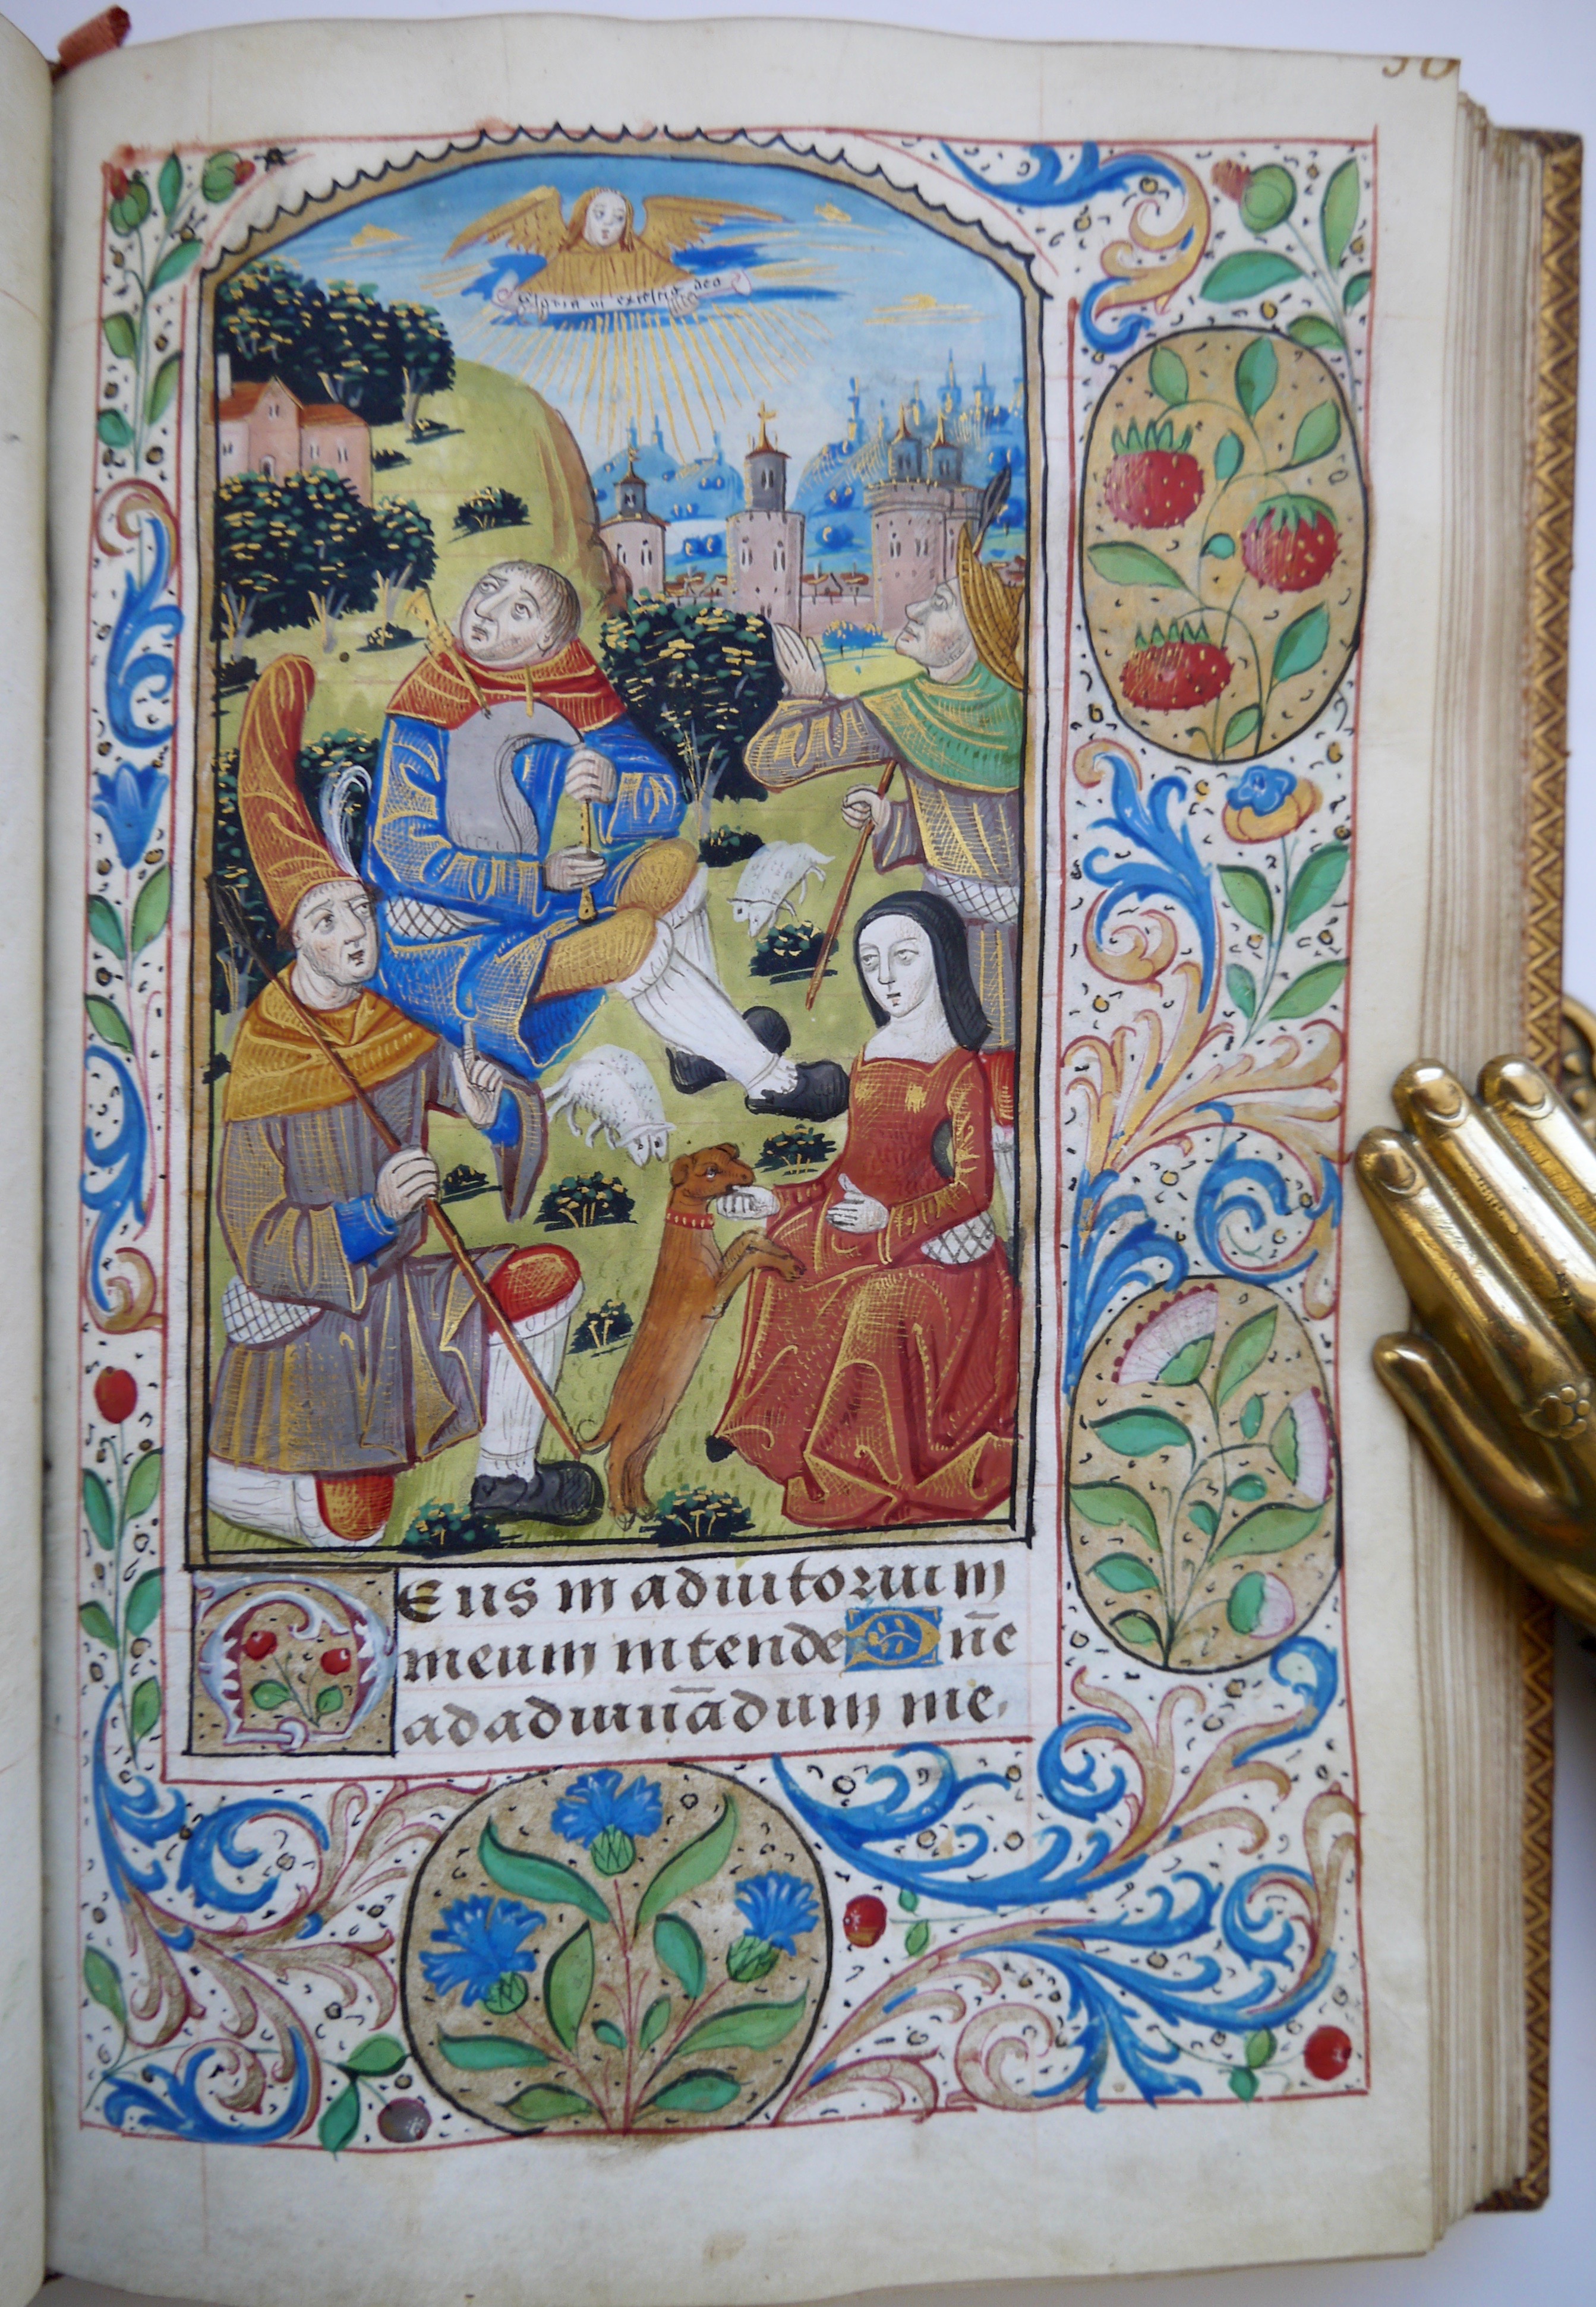 Gloria in excelsis deo
Deus in adiutorium
meum intende Dñe
ad adiuuādum me.